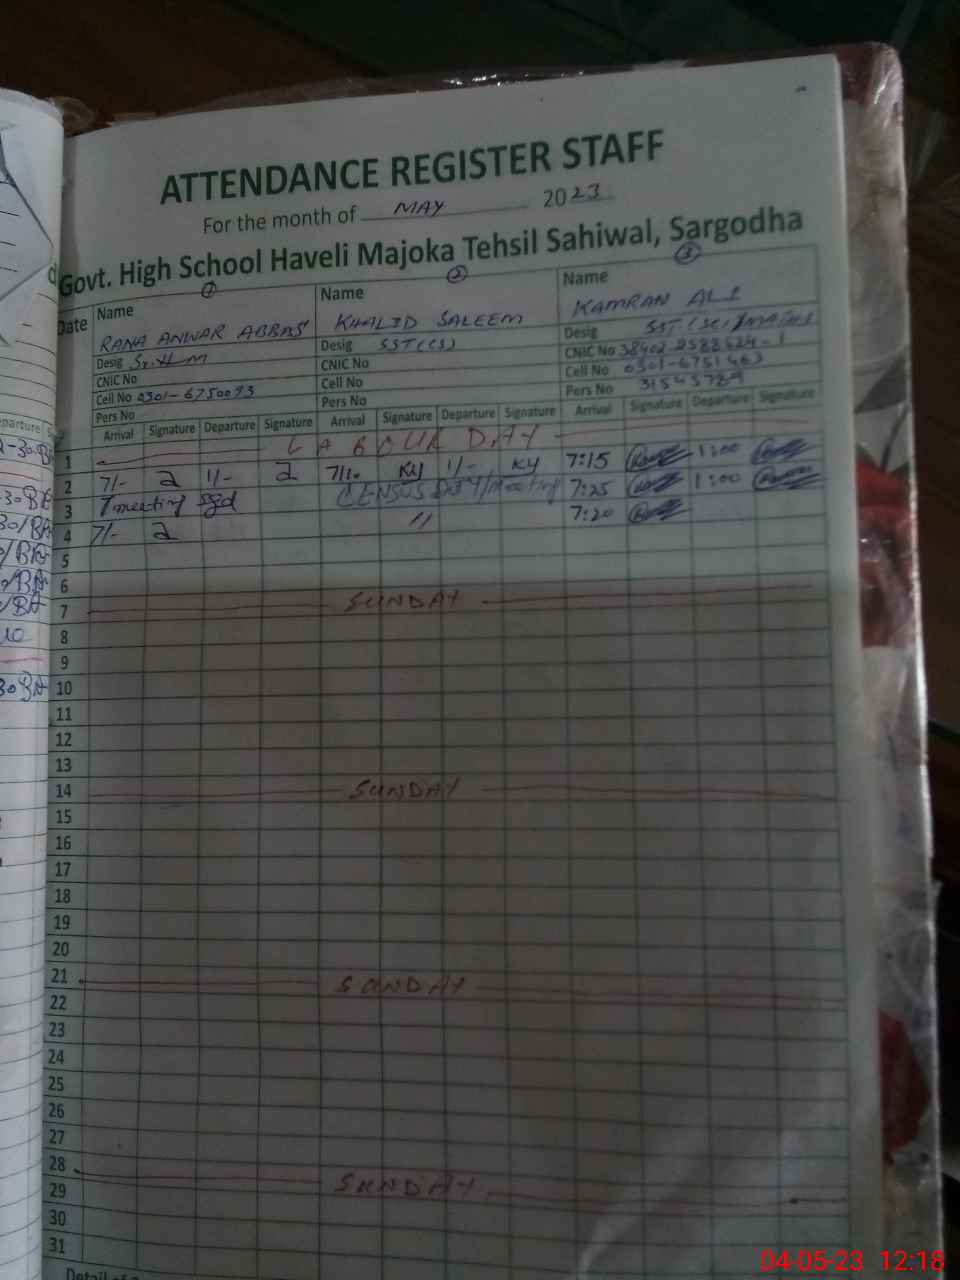 ATTENDANCE REGISTER STAFF
For the month of MAY 2023
Govt. High School Haveli Majoka Tehsil Sahiwal, Sargodha
1 2 3
Date Name Name Name
RANA ANWAR ABBAS KHALID SALEEM KAMRAN ALI
Desig Sr. H M Desig SST(CS) Desig SST (SCI) MATHS
CNIC No CNIC No CNIC No 38402-9588624-1
Cell No 0301-6750093 Cell No Cell No 0301-6751463
Pers No Pers No Pers No 31545789
Arrival Signature Departure Signature Arrival Signature Departure Signature Arrival Signature Departure Signature
1 LABOUR DAY
2 7/- 1/- 7/- 1/- 7:15 1:00
3 meeting CENSUS Duty/meeting 7:25 1:00
4 7/- " 7:20
5
6
7 SUNDAY
8
9
10
11
12
13
14 SUNDAY
15
16
17
18
19
20
21 SUNDAY
22
23
24
25
26
27
28 SUNDAY
29
30
31
04-05-23 12:18